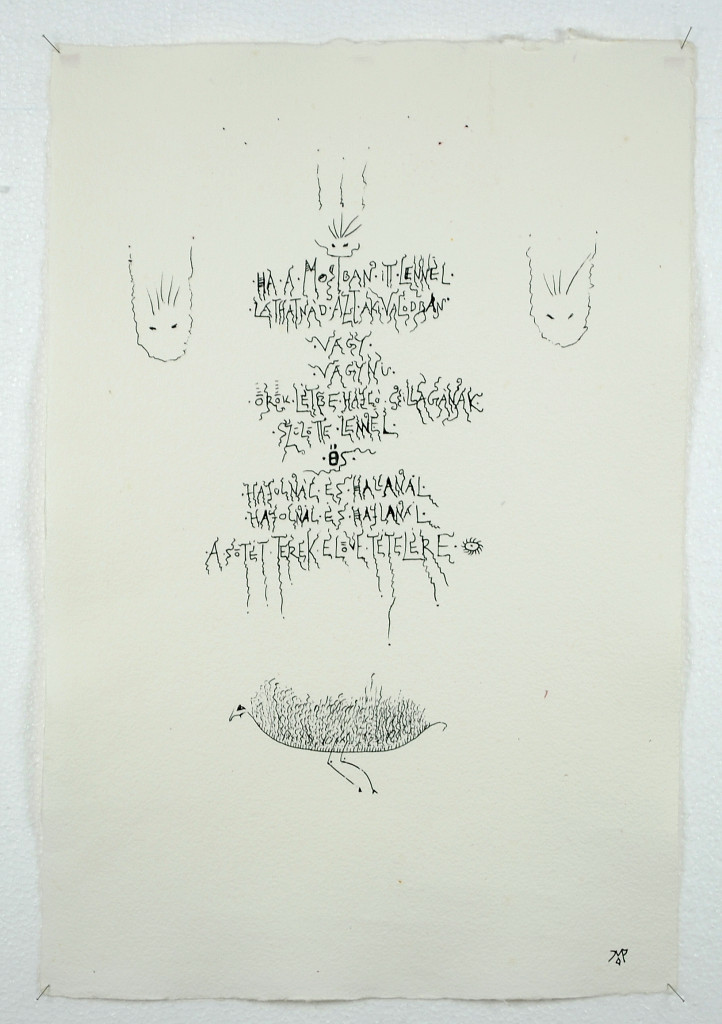 ·HA·A·MOSTBAN·ITT·LENNÉL·
·LÁTHATNÁD·AZT·AKI·VALÓDBAN·
VAGY·
VAGYNI·
·ÖRÖK·LÉTBE·HAJLÓ·
SZÜLÖTTE·LENNÉL·
·ŐS·
·HAJOLNÁL·ÉS·HALLANÁL
·HAJOLNÁL·ÉS·HAJLANÁL·
·A·SÖTÉT·TEREK·ELŐVETETÉLÉRE·